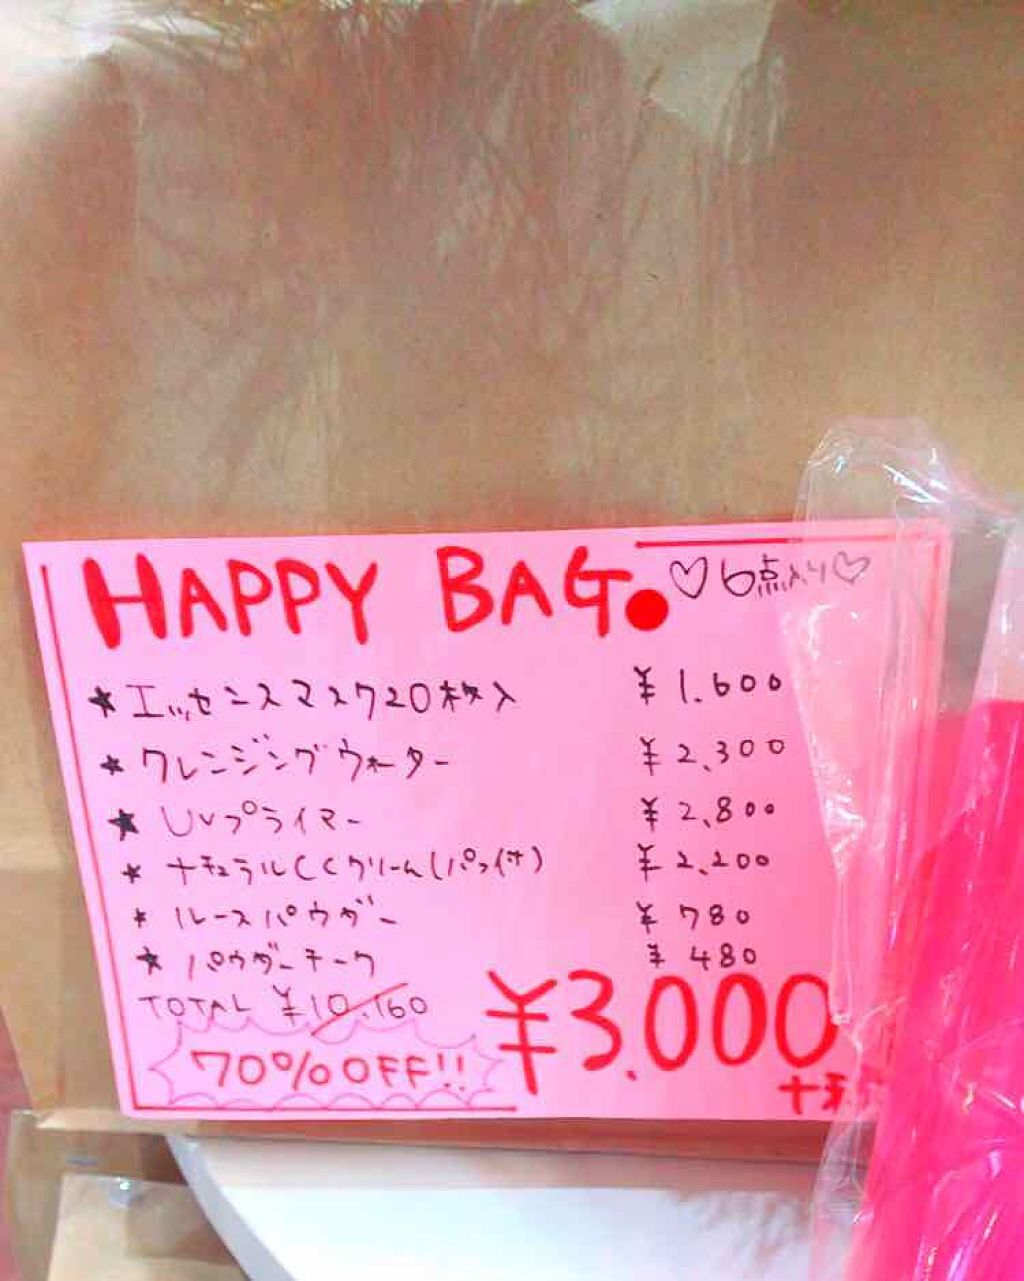 HAPPY BAG. ♡6点入り♡
★エッセンスマスク20枚入 ¥1.600
★クレンジングウォーター ¥2.300
★UVプライマー ¥2.800
★ナチュラルCCクリーム(パフ付) ¥2.200
★ルースパウダー ¥780
★パウダーチーク ¥480
TOTAL ¥10.160
70%OFF!!
¥3.000
+税